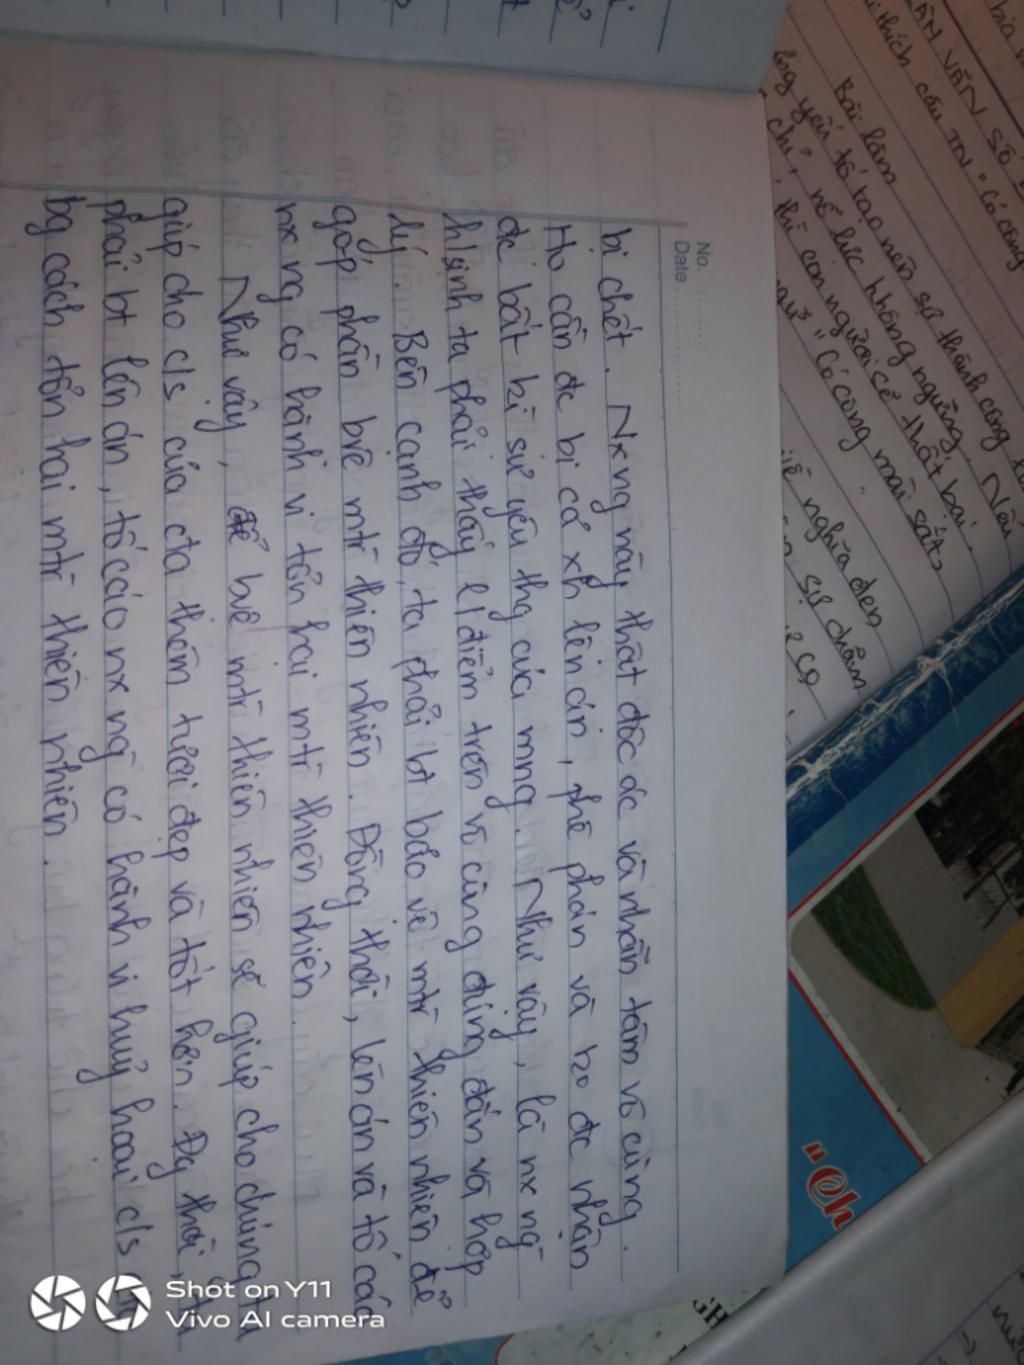 No. ..........
Date ....................
bị chết. Nx ng này thật độc ác và nhẫn tâm vô cùng.
Họ cần đc bị cả xh lên án, phê phán và ko đc nhận
đc bất kì sự yêu thg của mng. Như vậy, là nx ng
h/sinh ta phải thấy q/điểm trên vô cùng đúng đắn và hợp
lý. Bên cạnh đó, ta phải bt bảo vệ mtr thiên nhiên để
góp phần bvệ mtr thiên nhiên. Đồng thời, lên án và tố cáo
nx ng có hành vi tổn hại mtr thiên nhiên.
Như vậy, để bvệ mtr thiên nhiên sẽ giúp cho chúng ta
giúp cho c/s của cta thêm tươi đẹp và tốt hơn. Đg thời,
phải bt lên án, tố cáo nx ng có hành vi huỷ hoại c/s
bg cách tổn hại mtr thiên nhiên.
VĂN SỐ
thích câu TN "Có công
Bài làm
yếu tố tạo nên sự thành công
chí, nỗ lực không ngừng. Nếu
thì con người sẽ thất bại.
"Có công mài sắt,
nghĩa đen
sự chăm
"Ch
Shot on Y11
Vivo AI camera